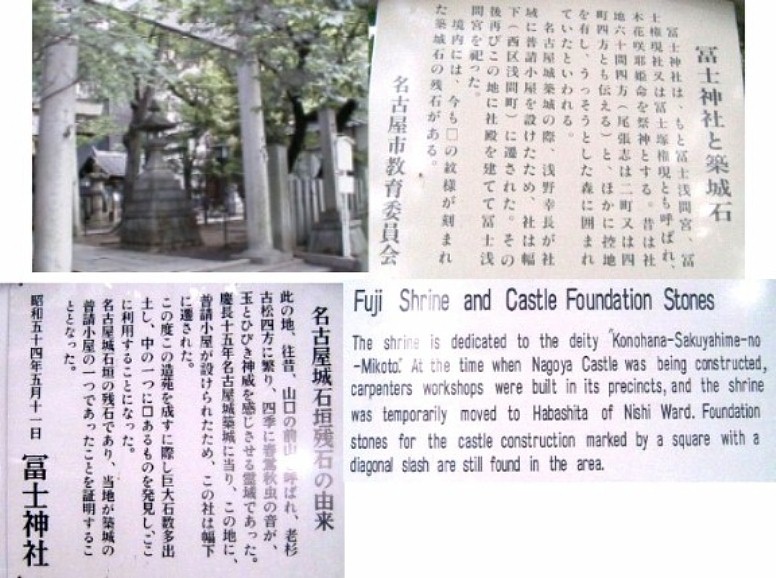 冨士神社と築城石
冨士神社は、もと冨士浅間宮、冨
士権現社又は冨士塚権現とも呼ばれ、
木花咲耶姫命を祭神とする。昔は社
地六十間四方（尾張志は二町又は四
町四方とも伝える）と、ほかに控地
を有し、うっそうとした森に囲まれ
ていたといわれる。
名古屋城築城の際、浅野幸長が社
域に普請小屋を設けたため、社は幅
下（西区浅間町）に遷された。その
後再びこの地に社殿を建てて冨士浅
間宮を祀った。
境内には、今も□の紋様が刻まれ
た築城石の残石がある。
名古屋市教育委員会
名古屋城石垣残石の由来
此の地、往昔、山口の前山と呼ばれ、老杉
古松四方に繁り、四季に春鶯秋虫の音が、
玉とひびき神威を感じさせる霊域であった。
慶長十五年名古屋城築城に当り、この地に、
普請小屋が設けられたため、この社は幅下
に遷された。
この度この造苑を成すに際し巨大石数多出
土し、中の一つに□あるものを発見し、ここ
に利用することになった。
名古屋城石垣の残石であり、当地が築城の
普請小屋の一つであったことを証明するこ
ととなった。
昭和五十四年五月十一日 冨士神社
Fuji Shrine and Castle Foundation Stones
The shrine is dedicated to the deity "Konohana-Sakuyahime-no
-Mikoto." At the time when Nagoya Castle was being constructed,
carpenters workshops were built in its precincts, and the shrine
was temporarily moved to Habashita of Nishi Ward. Foundation
stones for the castle construction marked by a square with a
diagonal slash are still found in the area.